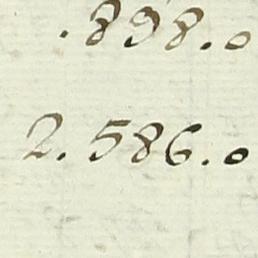 .898.0
2.586.0